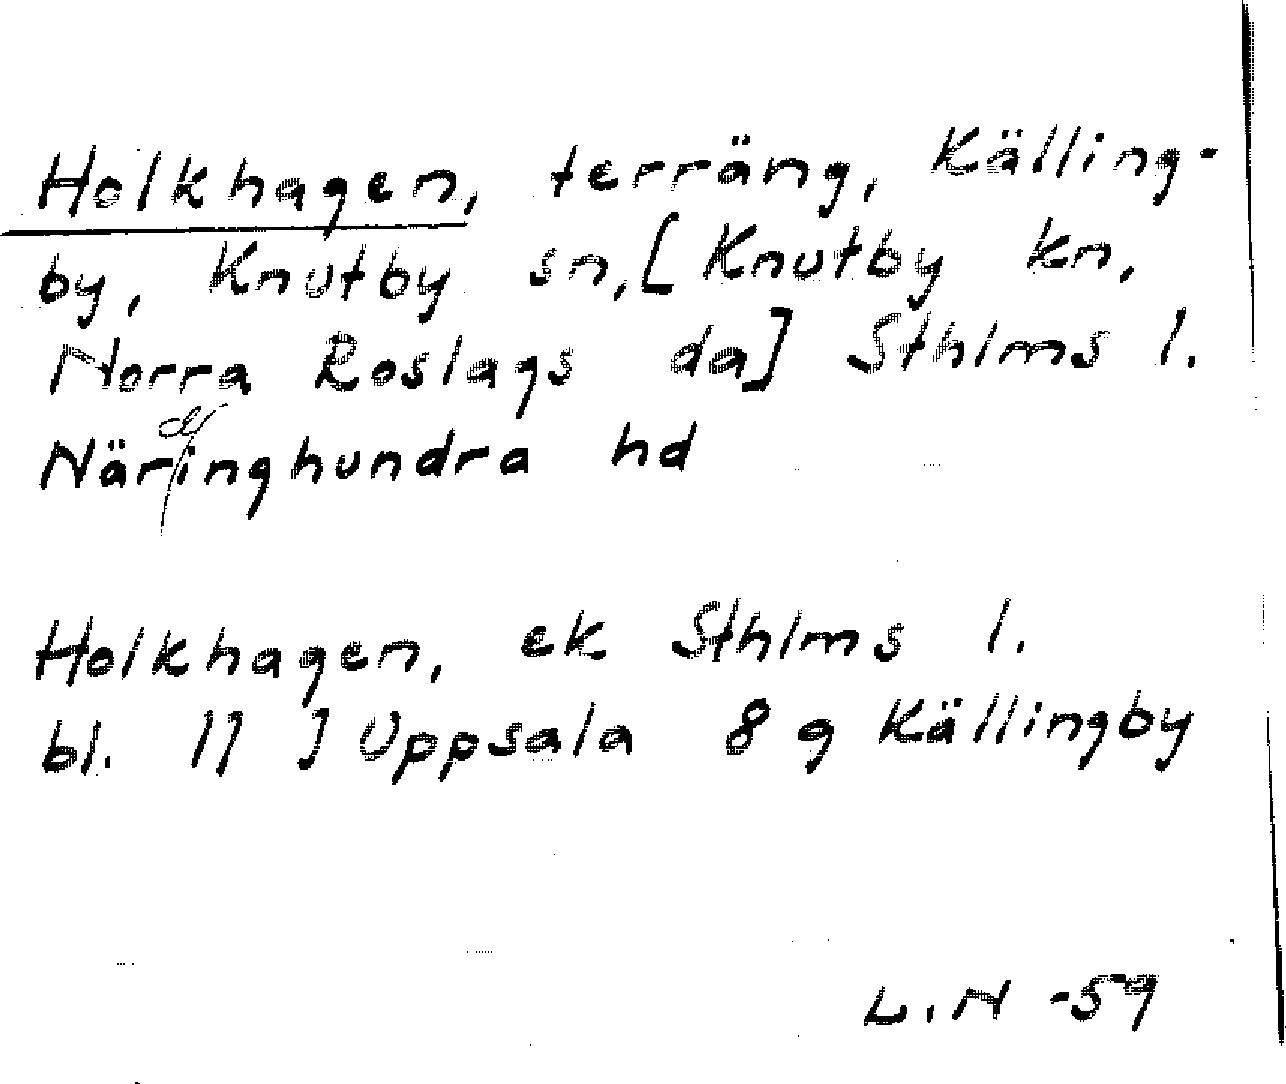 Holkhagen, terräng, Källing-
by, Knutby sn, [Knutby kn,
Norra Roslags da] Sthlms l.
Närdinghundra hd
Holkhagen, ek Sthlms l.
bl. 11 I Uppsala 8 g Källingby
L.N -59